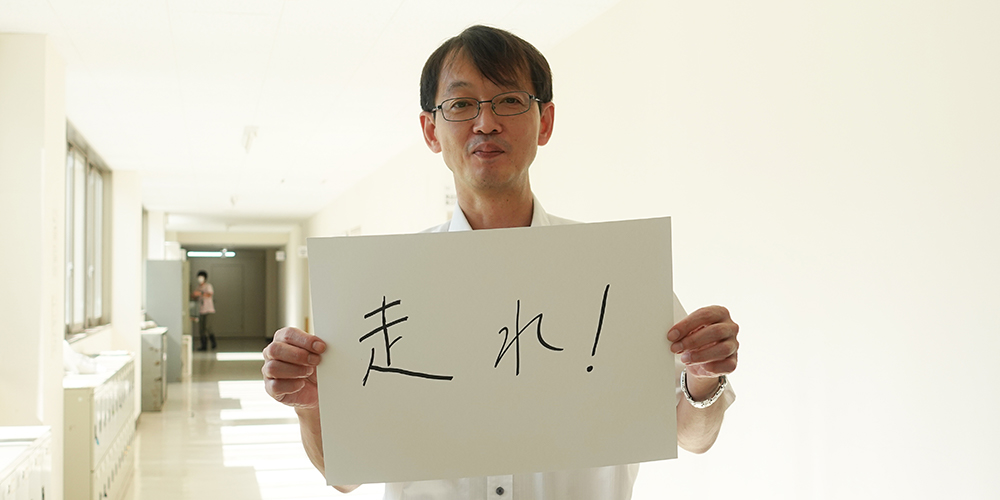 走れ!